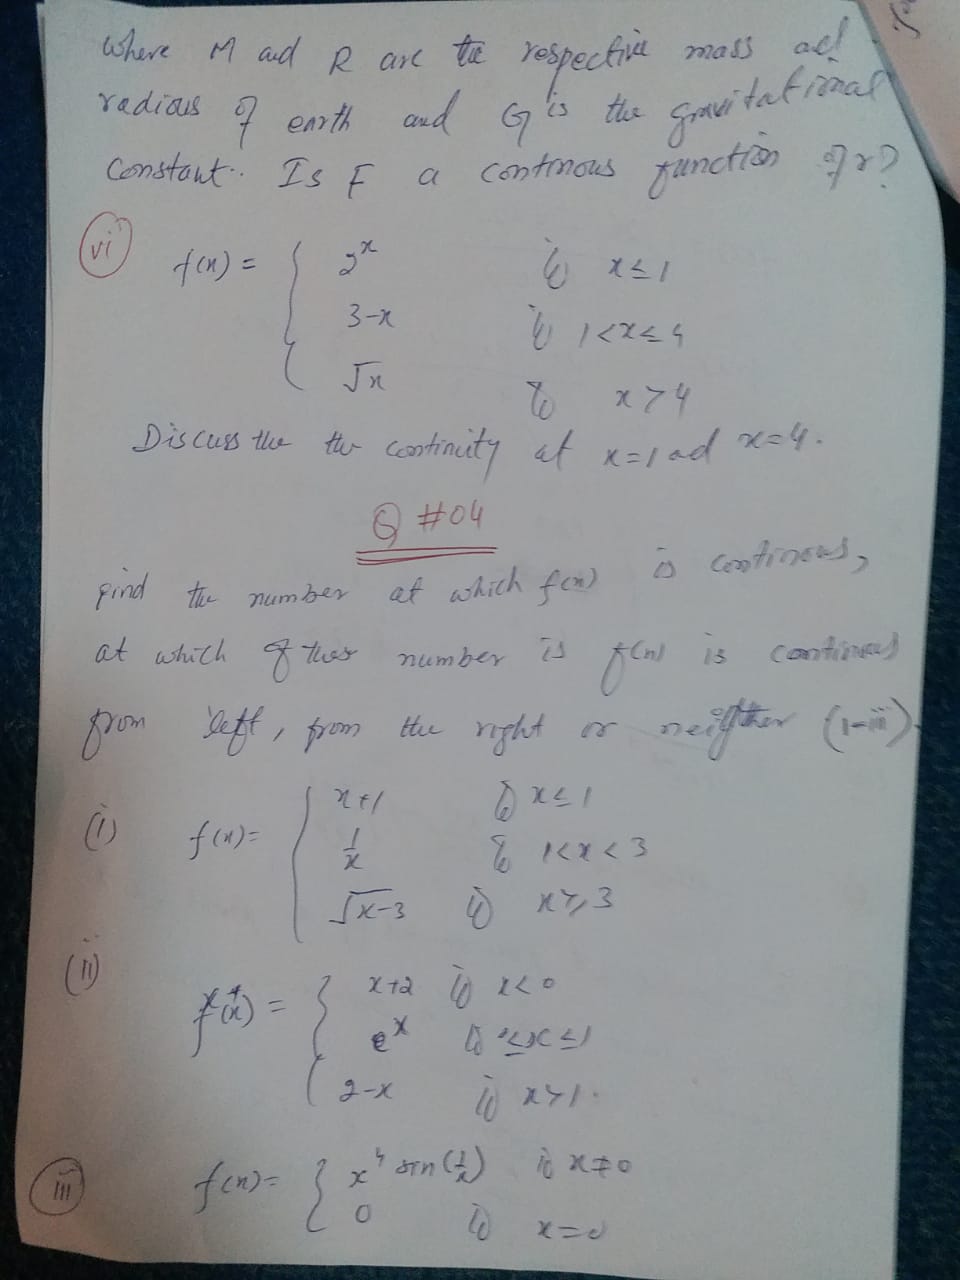 where M and R are the respective mass and
radious of earth and G is the gravitational
constant. Is F a continous function of r?
(vi) f(x) = { 2^x if x ≤ 1
3-x if 1<x≤4
√x if x>4
Discuss the the continuity at x=1 ad x=4.
Q #04
Find the number at which f(x) is continous,
at which of thes number is f(x) is continous
from left, from the right or neigther (i-iii)
(i) f(x)= { x+1 if x≤1
1/x if 1<x<3
√x-3 if x≥3
(ii)
f(x) = { x+2 if x<0
e^x if 0≤x≤1
2-x if x>1.
(iii) f(x)= { x^4 sin(1/x) if x≠0
0 if x=0